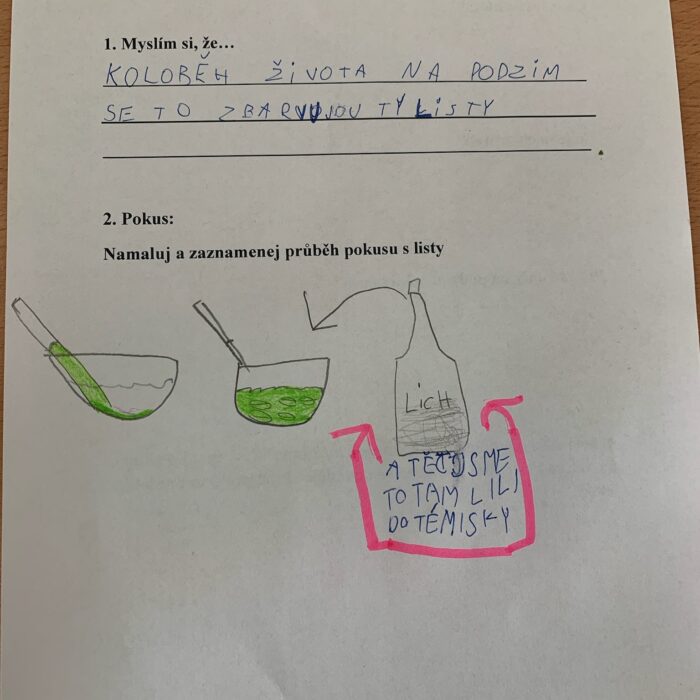 1. Myslím si, že…
KOLOBĚH ŽIVOTA NA PODZIM
SE TO ZBARVUJOU TY LISTY
2. Pokus:
Namaluj a zaznamenej průběh pokusu s listy
LicH
A TĚĎJSME
TO TAM LILI
DO TÉMISKY